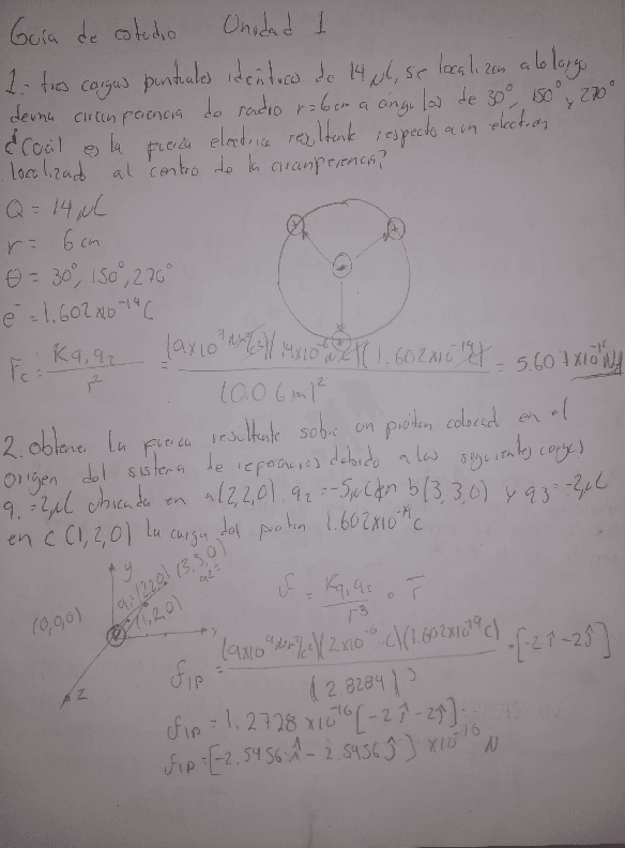 Guía de estudio Unidad 1
1.- tres cargas puntuales identicas de 14 μC, se localizan a lo largo
de una circunferencia de radio r=6cm a angulos de 30°, 150° y 270°
¿Cuál es la fuerza electrica resultante respecto a un electron
localizado al centro de la circunferencia?
Q = 14 μC
r = 6 cm
θ = 30°, 150°, 270°
e⁻ = 1.602x10⁻¹⁹C
Fc: Kq₁q₂/r² = (9x10⁹ Nm²/c²)(14x10⁻⁶C)(1.602x10⁻¹⁹C)/(0.06m)² = 5.607x10⁻¹² N
2. obtener la fuerza resultante sobre un proton colocad en el
origen del sistema de referencias debido a las seguientes cargas
q₁=2μC ubicada en a(2,2,0). q₂=-5μC en b(3,3,0) y q₃=-2μC
en c(1,2,0) la carga del proton 1.602x10⁻¹⁹C
y
q₁=(2,2,0) (3,3,0)
q₂=
(1,2,0)
(0,0,0)
x
z
F = Kq₁q₂/r³ · r̄
f₁p = (9x10⁹ Nm²/c²)(2x10⁻⁶ C)(1.602x10⁻¹⁹C)/(2.8284)³ · [-2î-2ĵ]
f₁p = 1.2728 x10⁻¹⁶ [-2î-2ĵ]
f₁p = [-2.5456 î - 2.5456 ĵ] x10⁻¹⁶ N